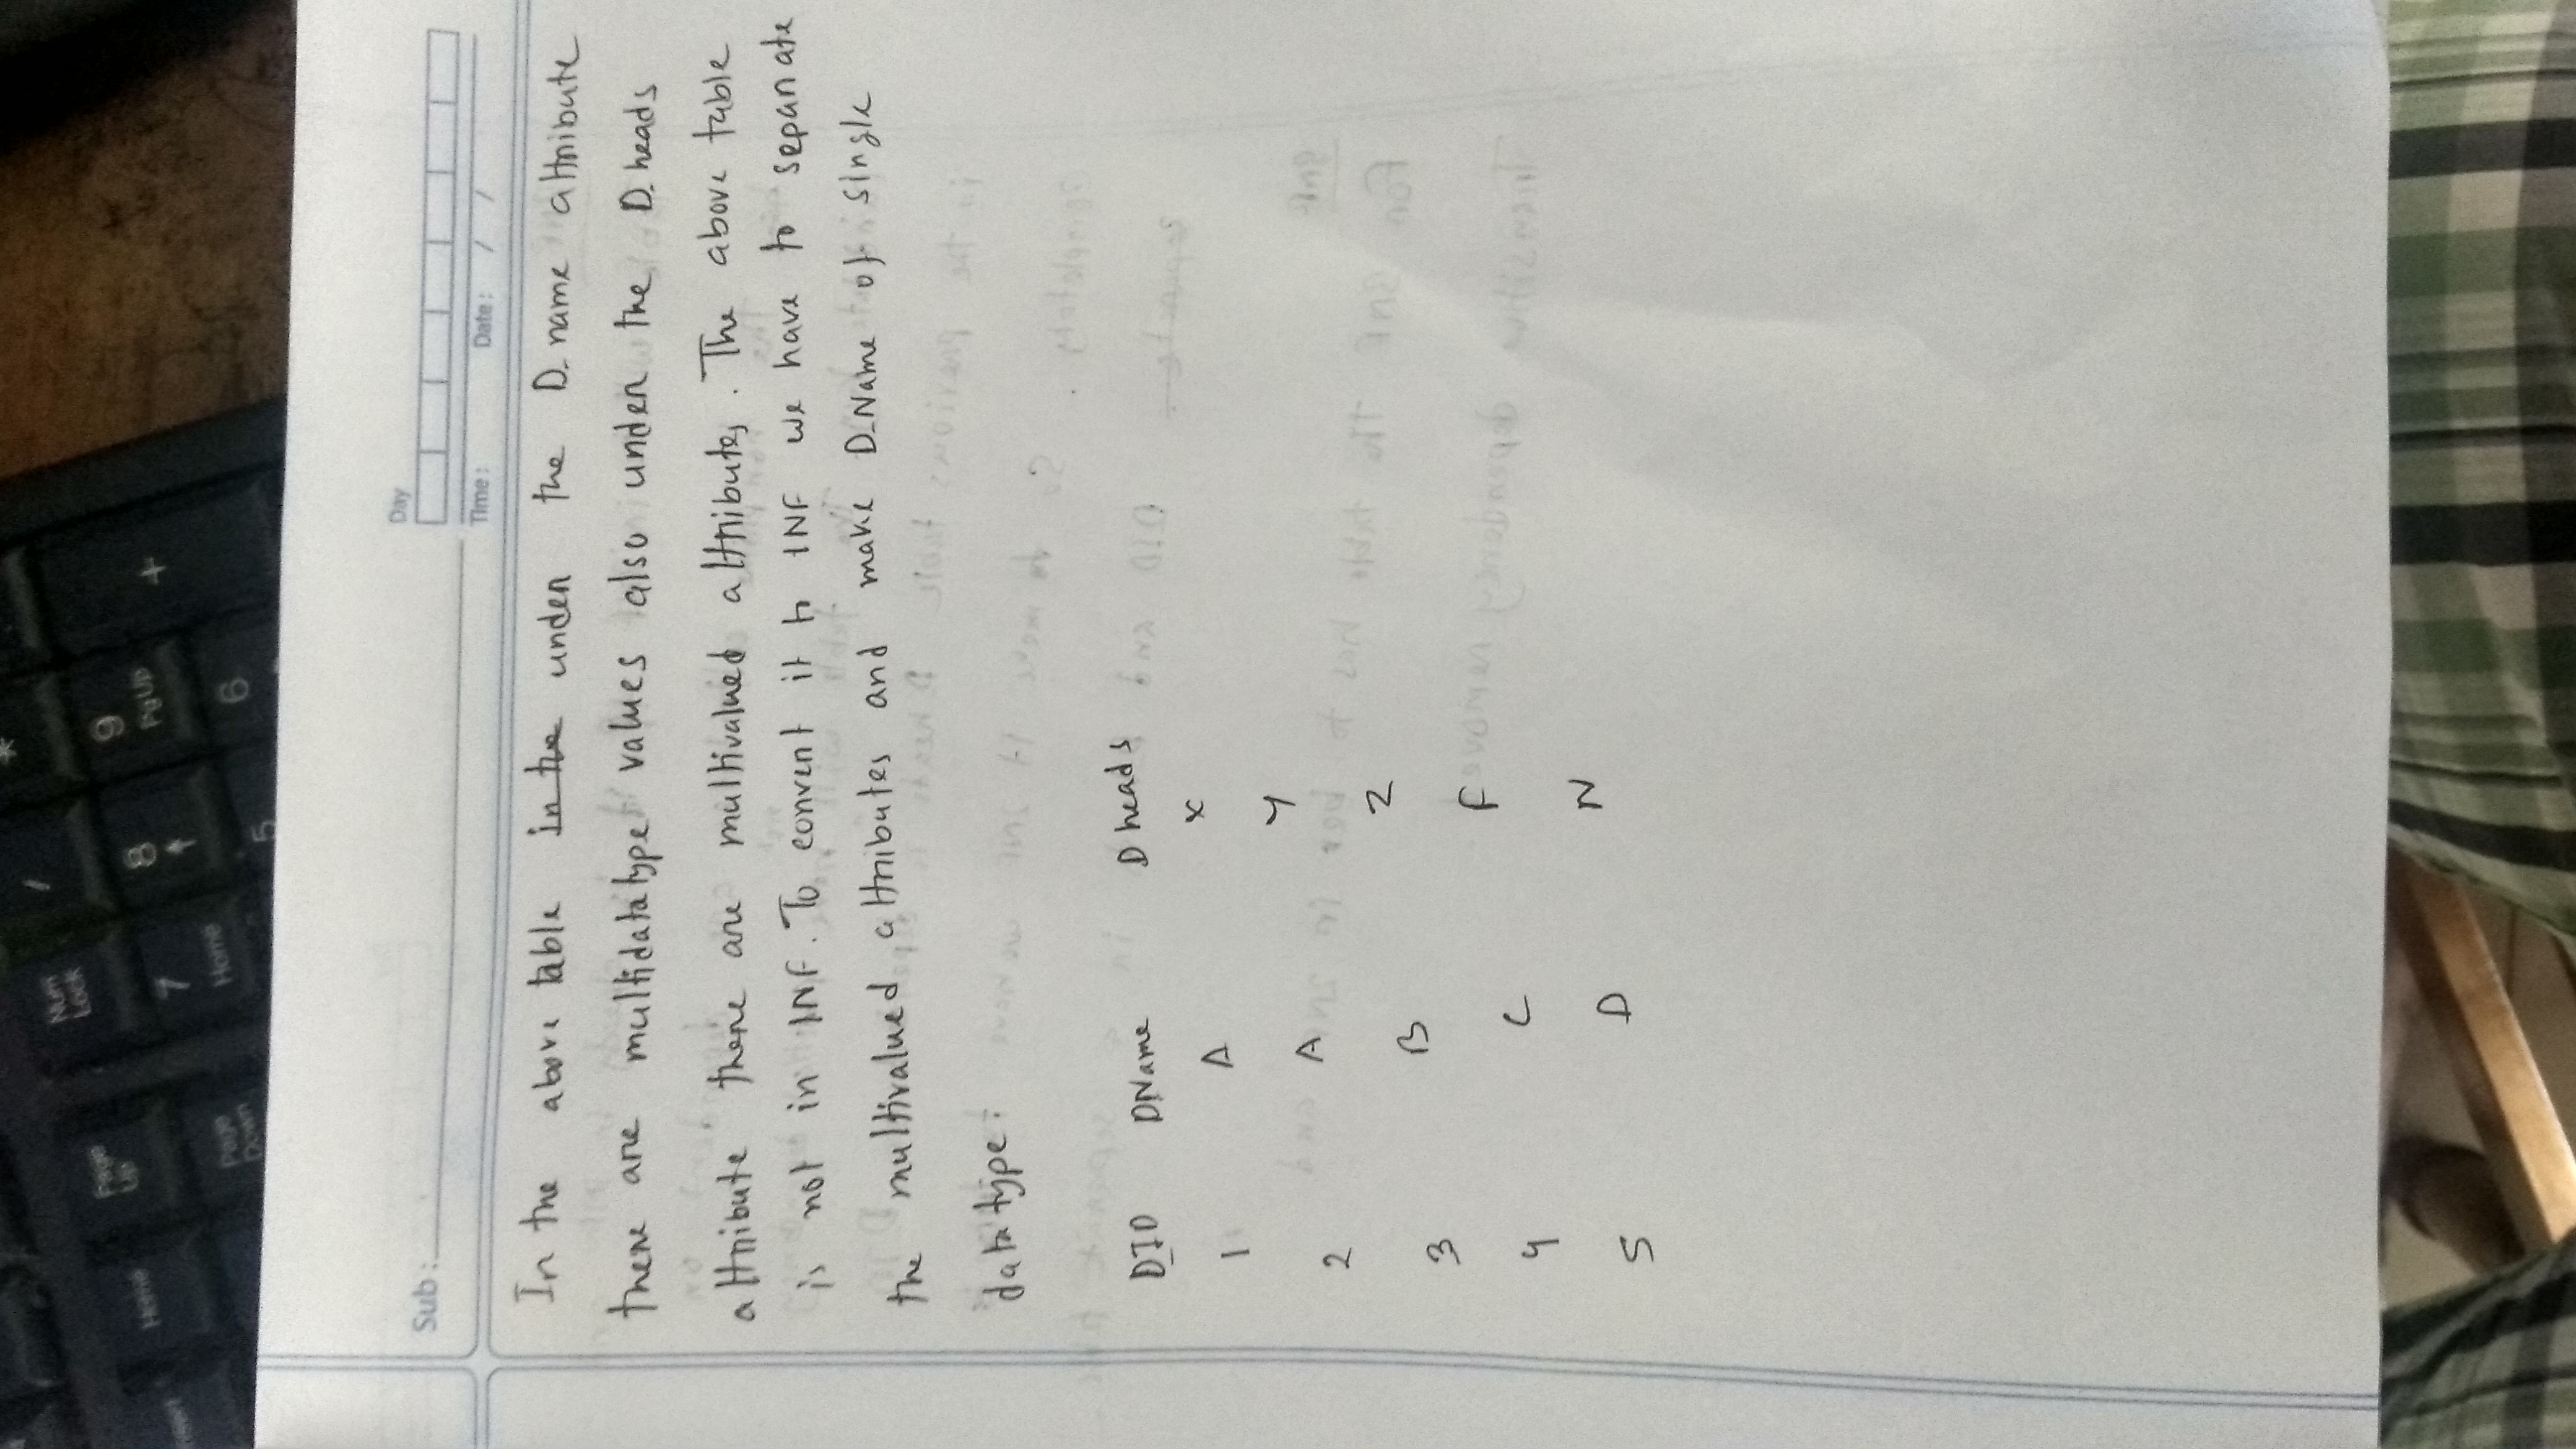 Day
Sub:
Time: Date: / /
In the above table in the under the D_name attribute
there are multidatatype values also under the D_heads
attribute there are multivalued attributes. The above table
is not in 1NF. To convert it to 1NF we have to separate
the multivalued attributes and make D_Name of single
datatype:
DID DName Dheads
1 A X
2 A Y
3 B Z
4 C F
5 D N
Num Lock
/
*
7 Home
8
9 PgUp
+
5
6
Page Up
Home
Page Down